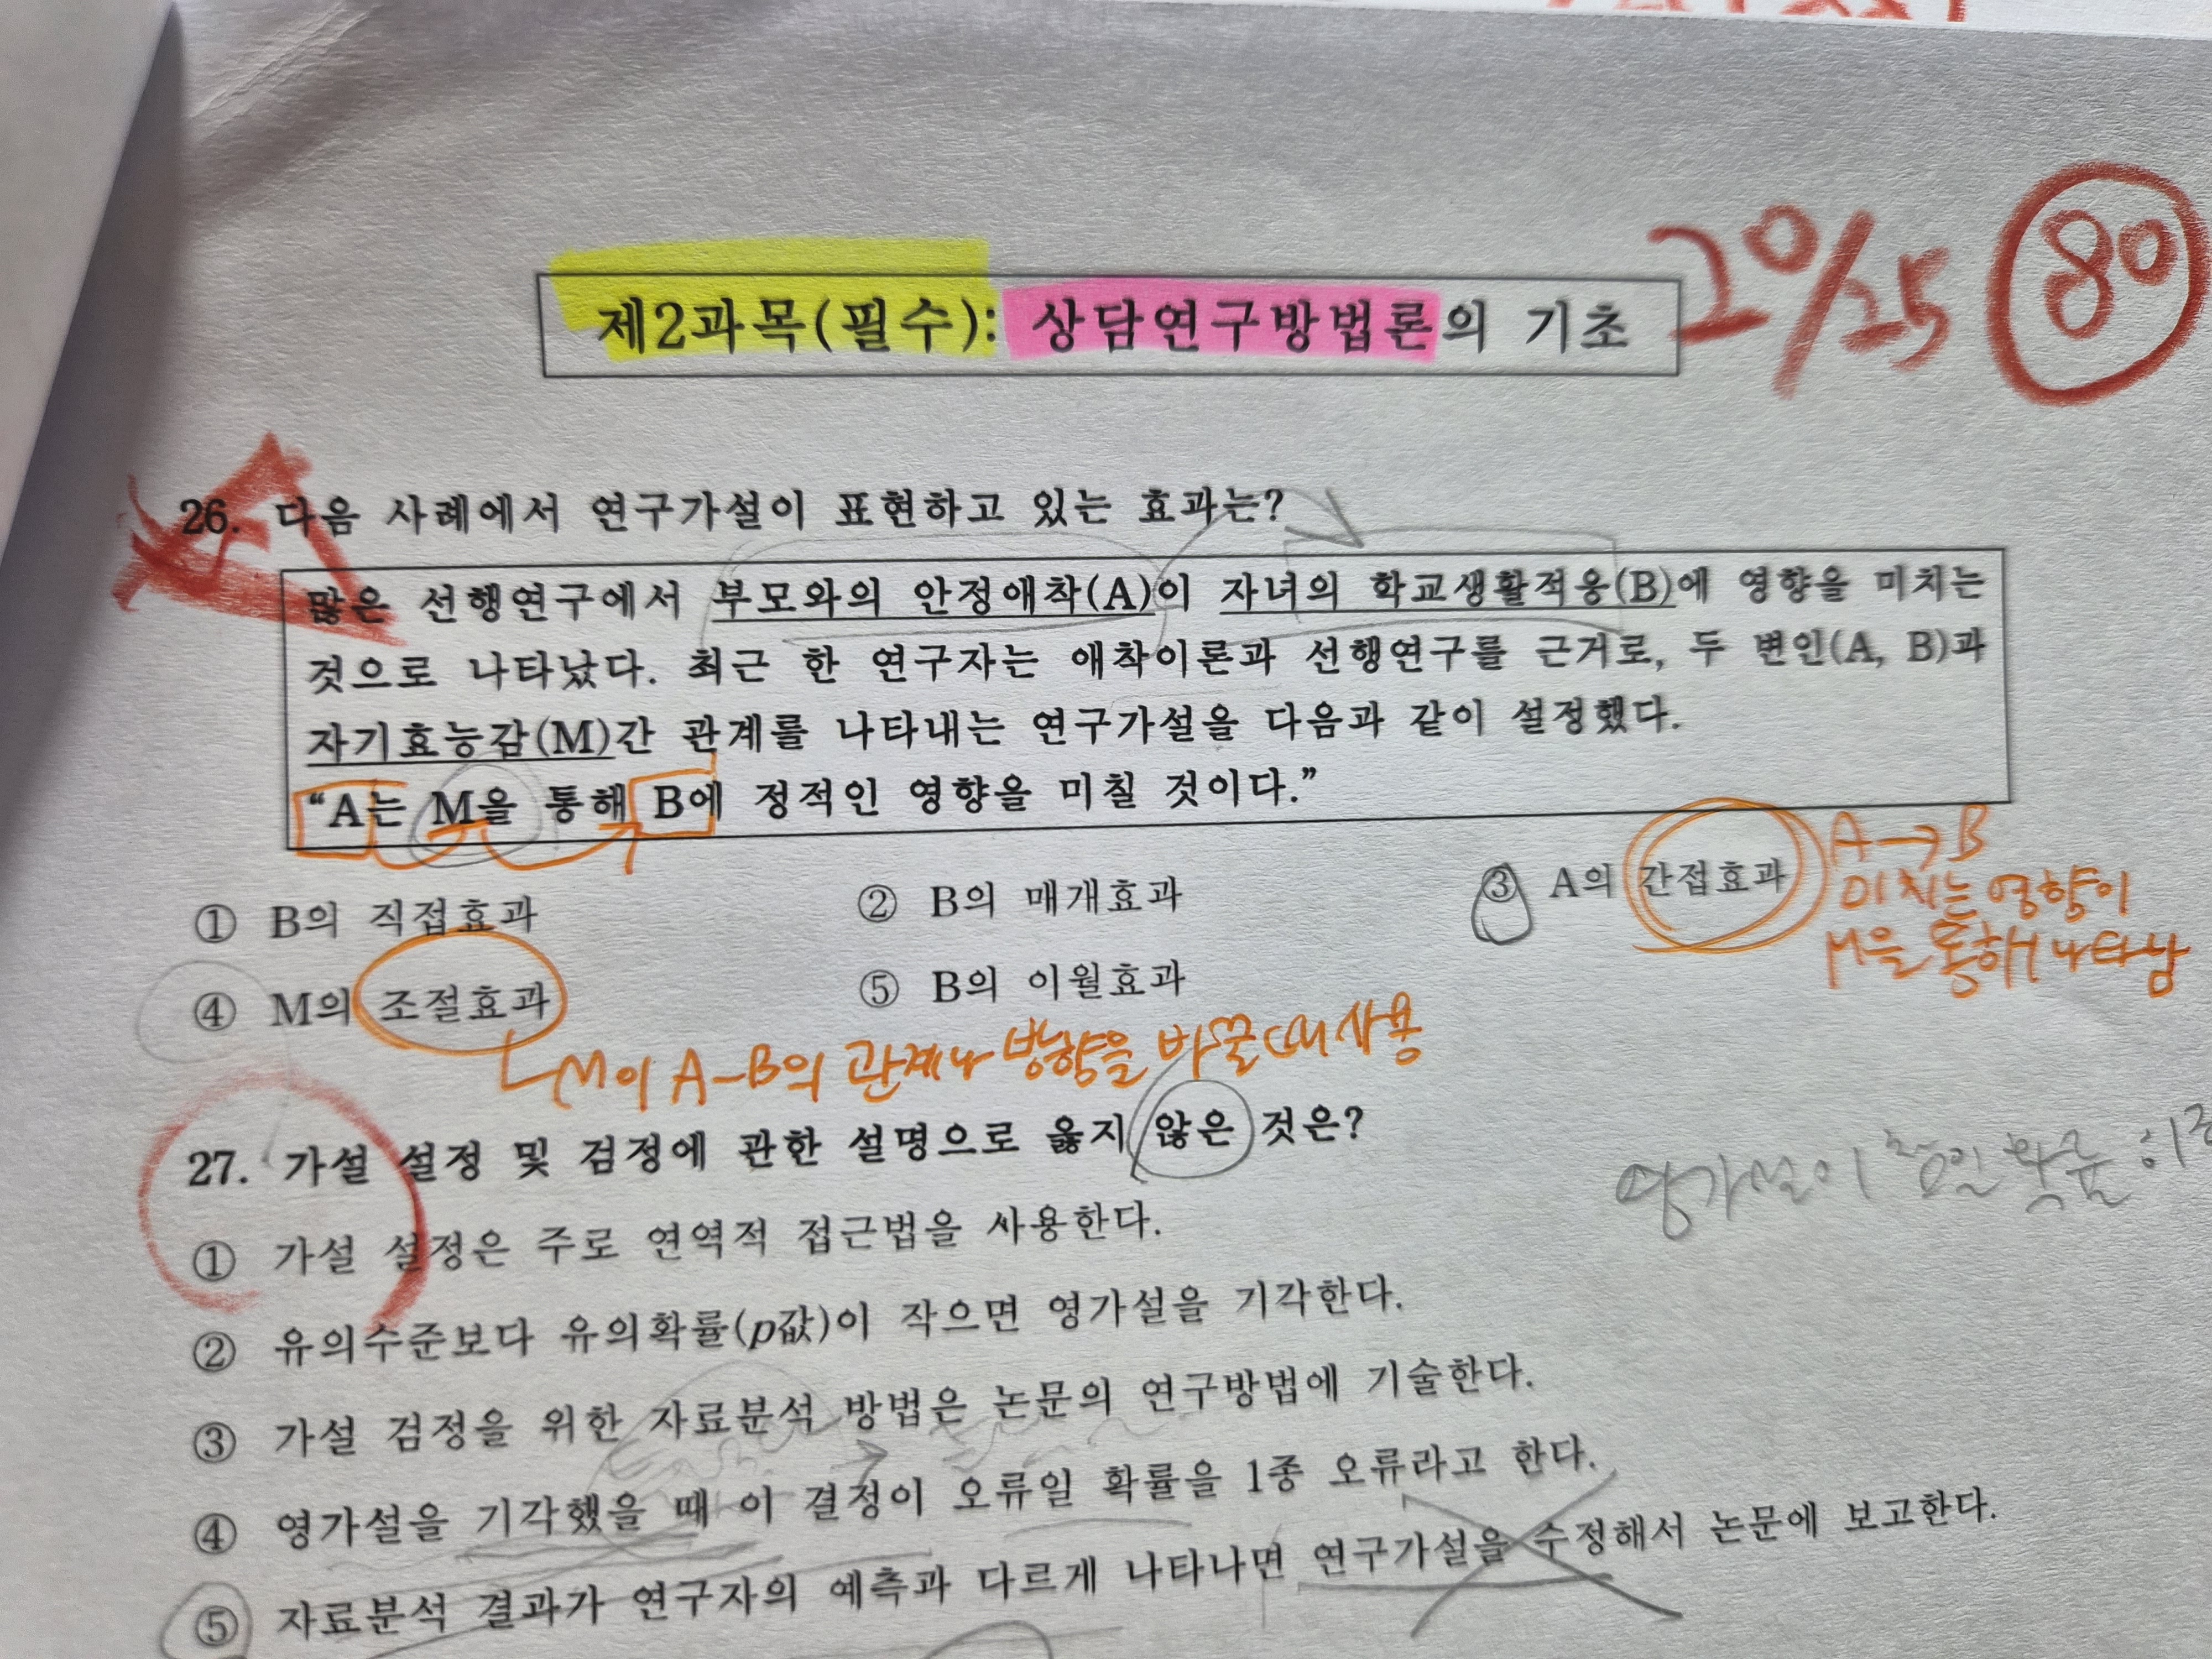 제2과목(필수): 상담연구방법론의 기초
20/25 80
26. 다음 사례에서 연구가설이 표현하고 있는 효과는?
많은 선행연구에서 부모와의 안정애착(A)이 자녀의 학교생활적응(B)에 영향을 미치는
것으로 나타났다. 최근 한 연구자는 애착이론과 선행연구를 근거로, 두 변인(A, B)과
자기효능감(M)간 관계를 나타내는 연구가설을 다음과 같이 설정했다.
“A는 M을 통해 B에 정적인 영향을 미칠 것이다.”
① B의 직접효과 ② B의 매개효과 ③ A의 간접효과
A→B
미치는 영향이
M을 통해 나타남
④ M의 조절효과 ⑤ B의 이월효과
M이 A-B의 관계나 방향을 바꿀 때 사용
27. 가설 설정 및 검정에 관한 설명으로 옳지 않은 것은?
영가설이 참일 확률
① 가설 설정은 주로 연역적 접근법을 사용한다.
② 유의수준보다 유의확률(p값)이 작으면 영가설을 기각한다.
③ 가설 검정을 위한 자료분석 방법은 논문의 연구방법에 기술한다.
④ 영가설을 기각했을 때 이 결정이 오류일 확률을 1종 오류라고 한다.
⑤ 자료분석 결과가 연구자의 예측과 다르게 나타나면 연구가설을 수정해서 논문에 보고한다.